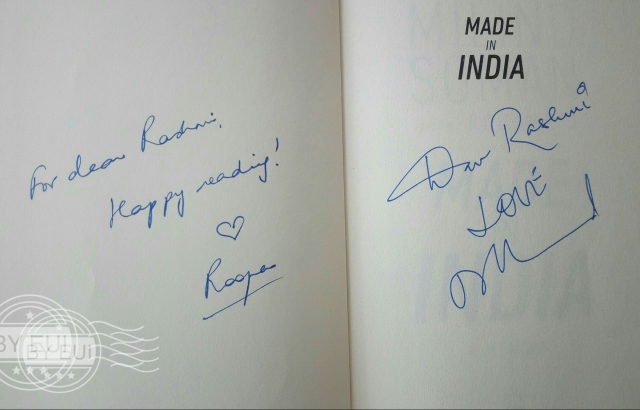 For dear Rashmi,
Happy reading!
Roopa
MADE
IN
INDIA
Dear Rashmi
LOVE
BY EUi
BY EUi